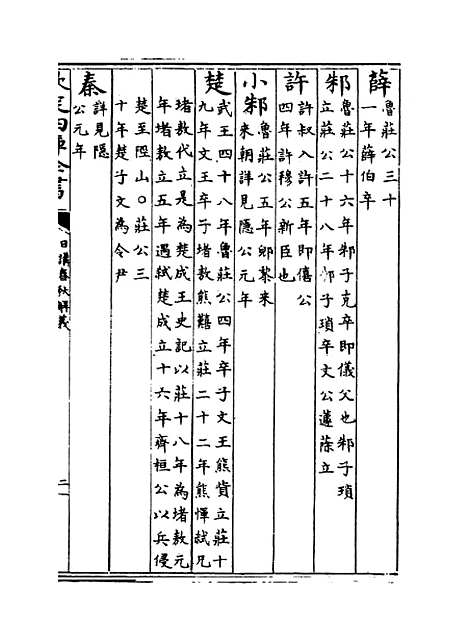 薛
魯莊公三十
一年薛伯卒
邾
魯莊公十六年邾子克卒即儀父也邾子瑣
立莊公二十八年邾子瑣卒文公蘧蒢立
許
許叔入許五年即僖公
四年許穆公新臣也
小邾
魯莊公五年郳黎来
来朝詳見隱公元年
楚
武王四十八年魯莊公四年卒子文王熊貲立莊十
九年文王卒子堵敖熊囏立莊二十二年熊惲弑兄
堵敖代立是為楚成王史記以莊十八年為堵敖元
年堵敖立五年遇弑楚成立十六年齊桓公以兵侵
楚至陘山○莊公三
十年楚子文為令尹
秦
詳見隱
公元年
欽定四庫全書
日講春秋解義
二